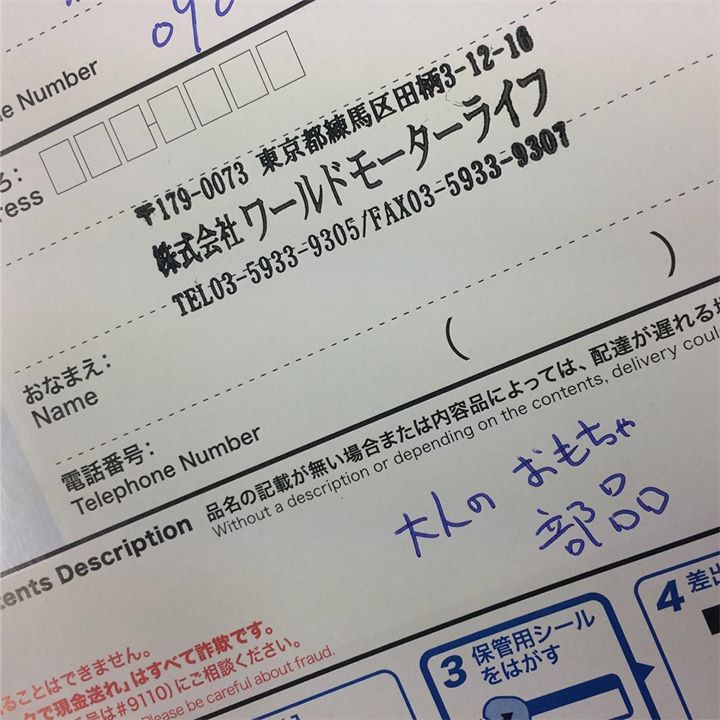 090
ne Number
ろ:
ress
〒179-0073 東京都練馬区田柄3-12-16
株式会社 ワールドモーターライフ
TEL03-5933-9305/FAX03-5933-9307
おなまえ:
Name
(
)
電話番号:
Telephone Number
品名の記載が無い場合または内容品によっては、配達が遅れる場
Without a description or depending on the contents, delivery coul
tents Description
大人の おもちゃ
部品
ることはできません。
クで現金送れ」はすべて詐欺です。
号は#9110)にご相談ください。
Please be careful about fraud.
3 保管用シール
をはがす
4 差出